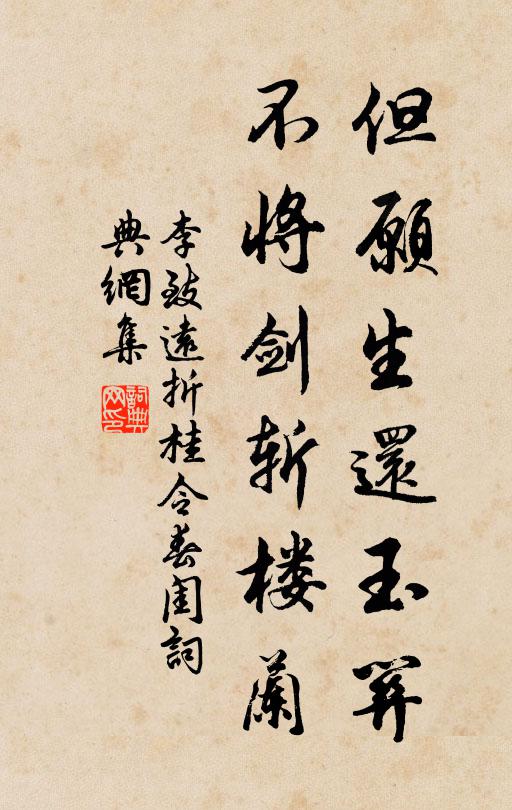 但願生還玉關
不將剑斬楼蘭
李致遠折桂令春闺詞
典網集
詞典网印